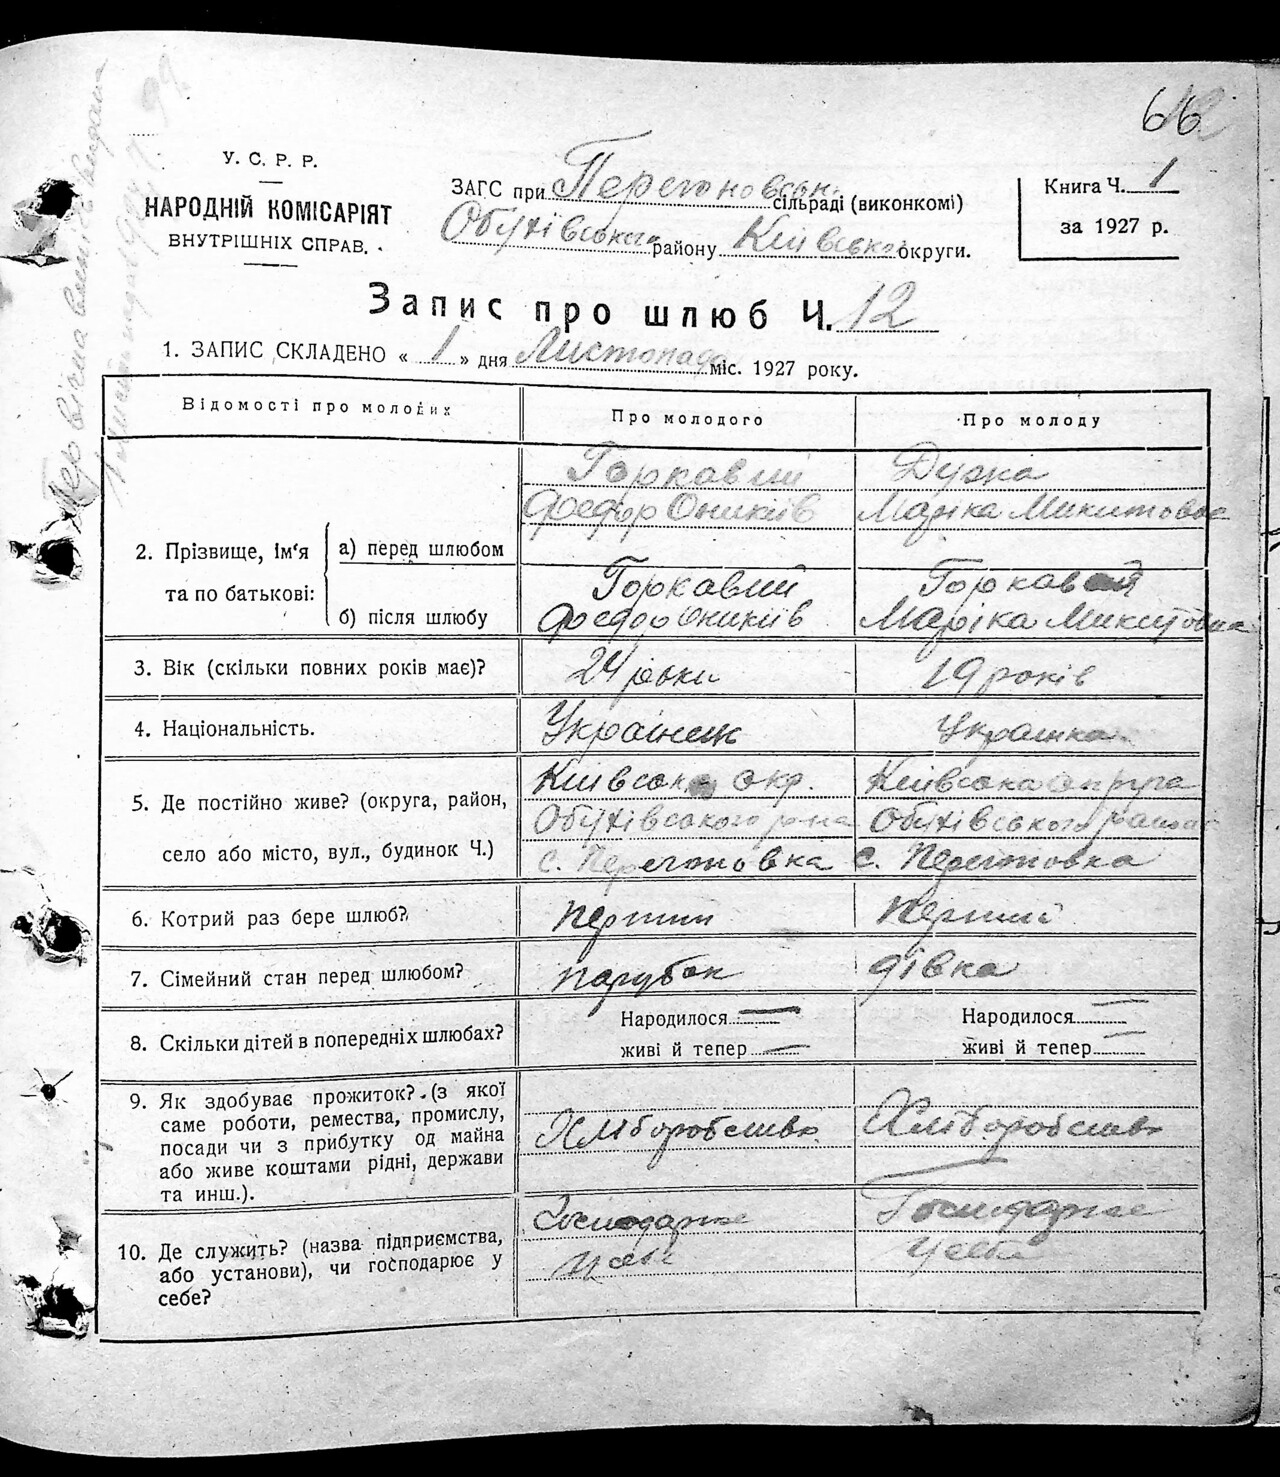 66
У. С. Р. Р.
НАРОДНІЙ КОМІСАРІЯТ
ВНУТРІШНІХ СПРАВ.
ЗАГС при Перегоновськ. сільраді (виконкомі)
Обухівського району Київської округи.
Книга Ч. 1
за 1927 р.
Запис про шлюб Ч. 12
1. ЗАПИС СКЛАДЕНО « 1 » дня Листопада міс. 1927 року.
Відомості про молодих
Про молодого
Про молоду
2. Прізвище, ім'я та по батькові:
а) перед шлюбом
Горкавий
Федор Оникіїв
Дузка
Маріка Микитовна
б) після шлюбу
Горкавий
Федор Оникіїв
Горкавой
Маріка Микитовна
3. Вік (скільки повних років має)?
24 роки
19 років
4. Національність.
Українець
Українка
5. Де постійно живе? (округа, район,
село або місто, вул., будинок Ч.)
Київськ окр.
Обухівського рона
с. Перегоновка
Київська округа
Обухівського району
с. Перегоновка
6. Котрий раз бере шлюб?
перший
перший
7. Сімейний стан перед шлюбом?
парубок
дівка
8. Скільки дітей в попередніх шлюбах?
Народилося —
живі й тепер —
Народилося —
живі й тепер —
9. Як здобуває прожиток? (з якої
саме роботи, ремества, промислу,
посади чи з прибутку од майна
або живе коштами рідні, держави
та инш.).
Хліборобство
Хліборобство
10. Де служить? (назва підприємства,
або установи), чи господарює у
себе?
Господарює
у себе
Господарює
у себе